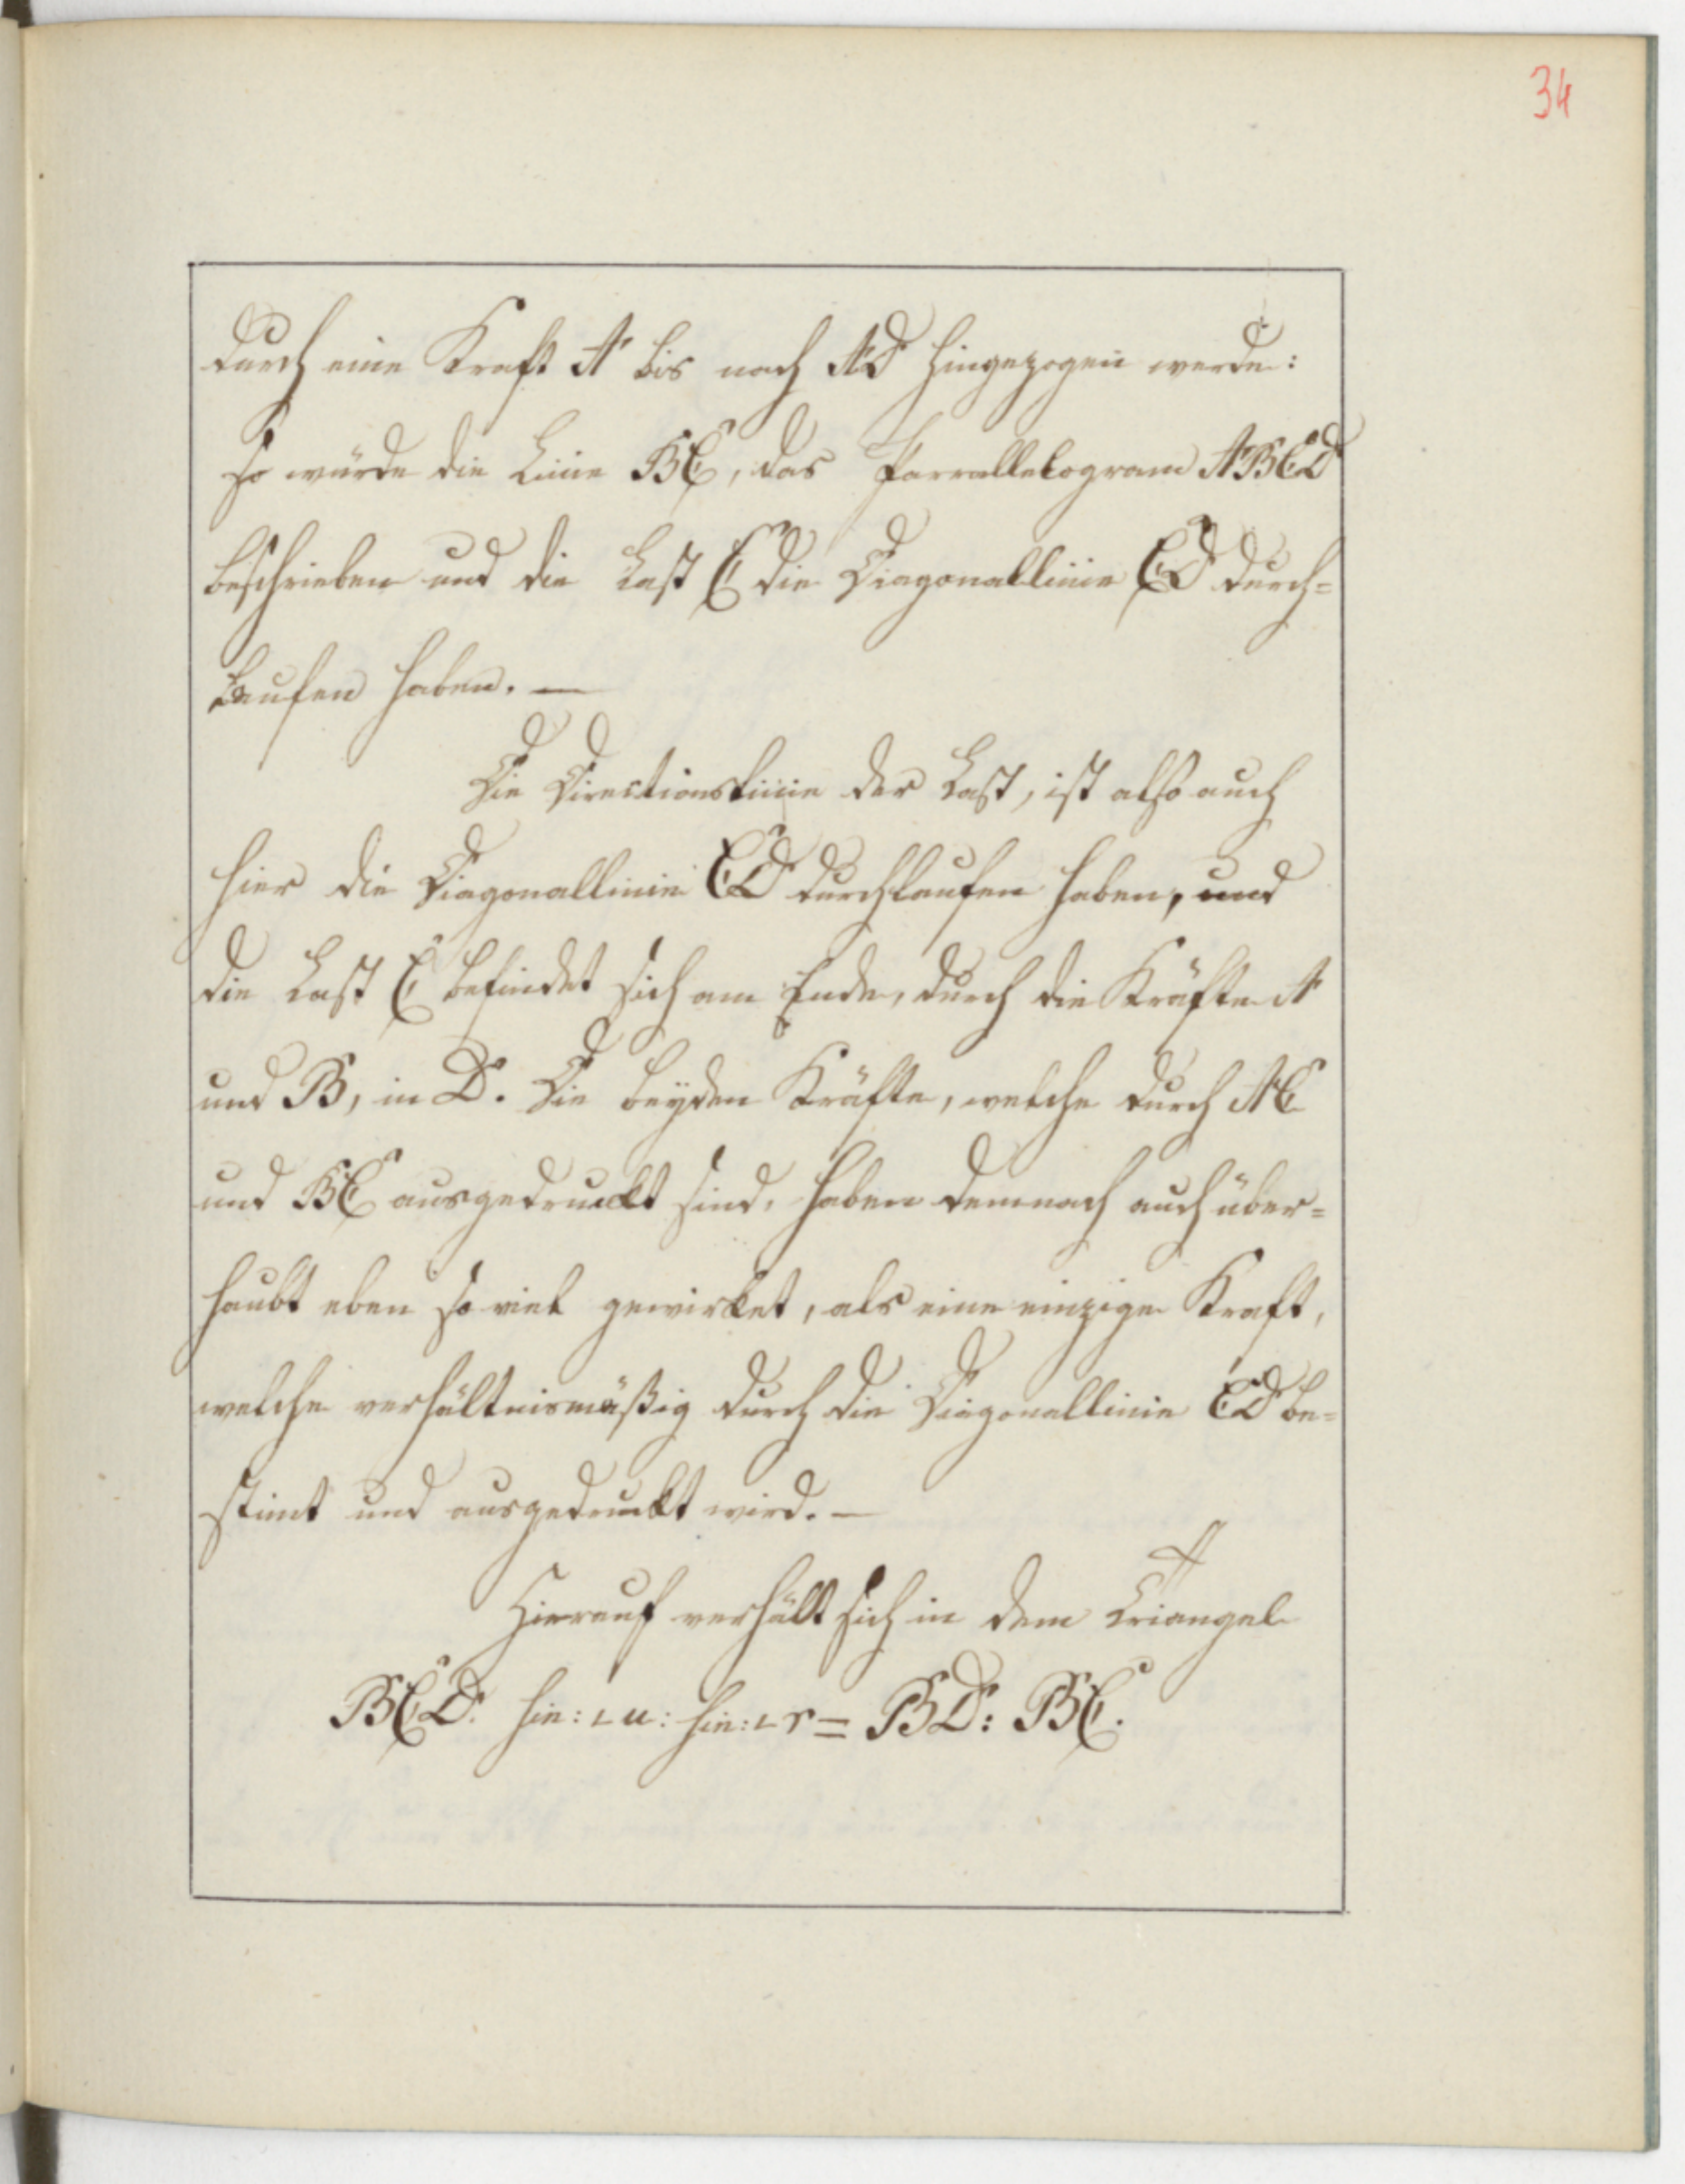 34
durch eine Kraft A bis nach AD hingezogen werde:
so würde die Linie BC, das Parrallelogram ABCD
beschrieben und die Last C die Diagonallinie CD durch=
laufen haben. —
Die Directionslinie der Last, ist also auch
hier die Diagonallinie CD durchlaufen haben, und
die Last C befindet sich am Ende, durch die Kräfte A
und B, in D. Die beyden Kräfte, welche durch AC
und BC ausgedruckt sind, haben demnach auch über=
haubt eben so viel gewirket, als eine einzige Kraft,
welche verhältnismäßig durch die Diagonallinie CD be=
stimt und ausgedruckt wird. —
Hierauf verhält sich in dem Triangel
BCD. sin: ∟ u: sin: ∟ r = BD: BC.